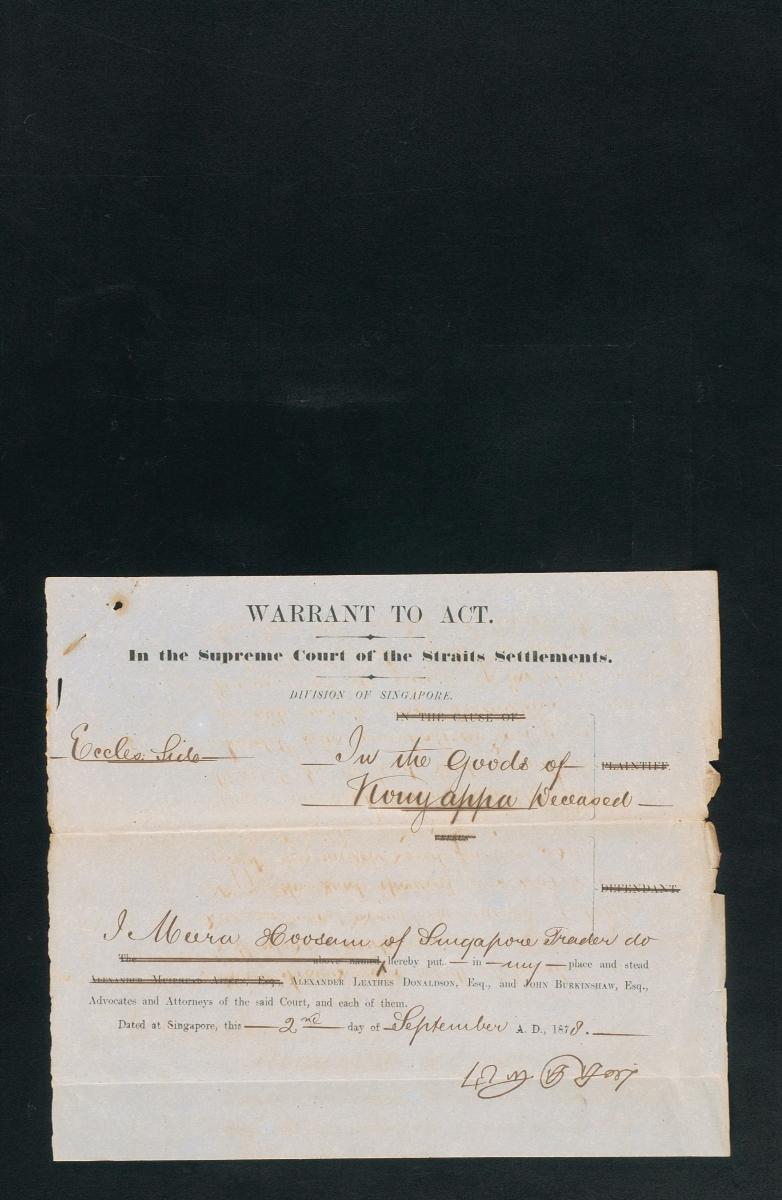 WARRANT TO ACT.
In the Supreme Court of the Straits Settlements.
DIVISION OF SINGAPORE.
IN THE CAUSE OF
Eccles. Side
In the Goods of
PLAINTIFF.
Deceased
VERSUS
DEFENDANT.
I Meera Hoosain of Singapore Trader do
The above named, hereby put in my place and stead
ALEXANDER MUIRHEAD AITKEN, ESQ., ALEXANDER LEATHES DONALDSON, ESQ., and JOHN BURKINSHAW, ESQ.,
Advocates and Attorneys of the said Court, and each of them.
Dated at Singapore, this 2nd day of September A. D., 1878.